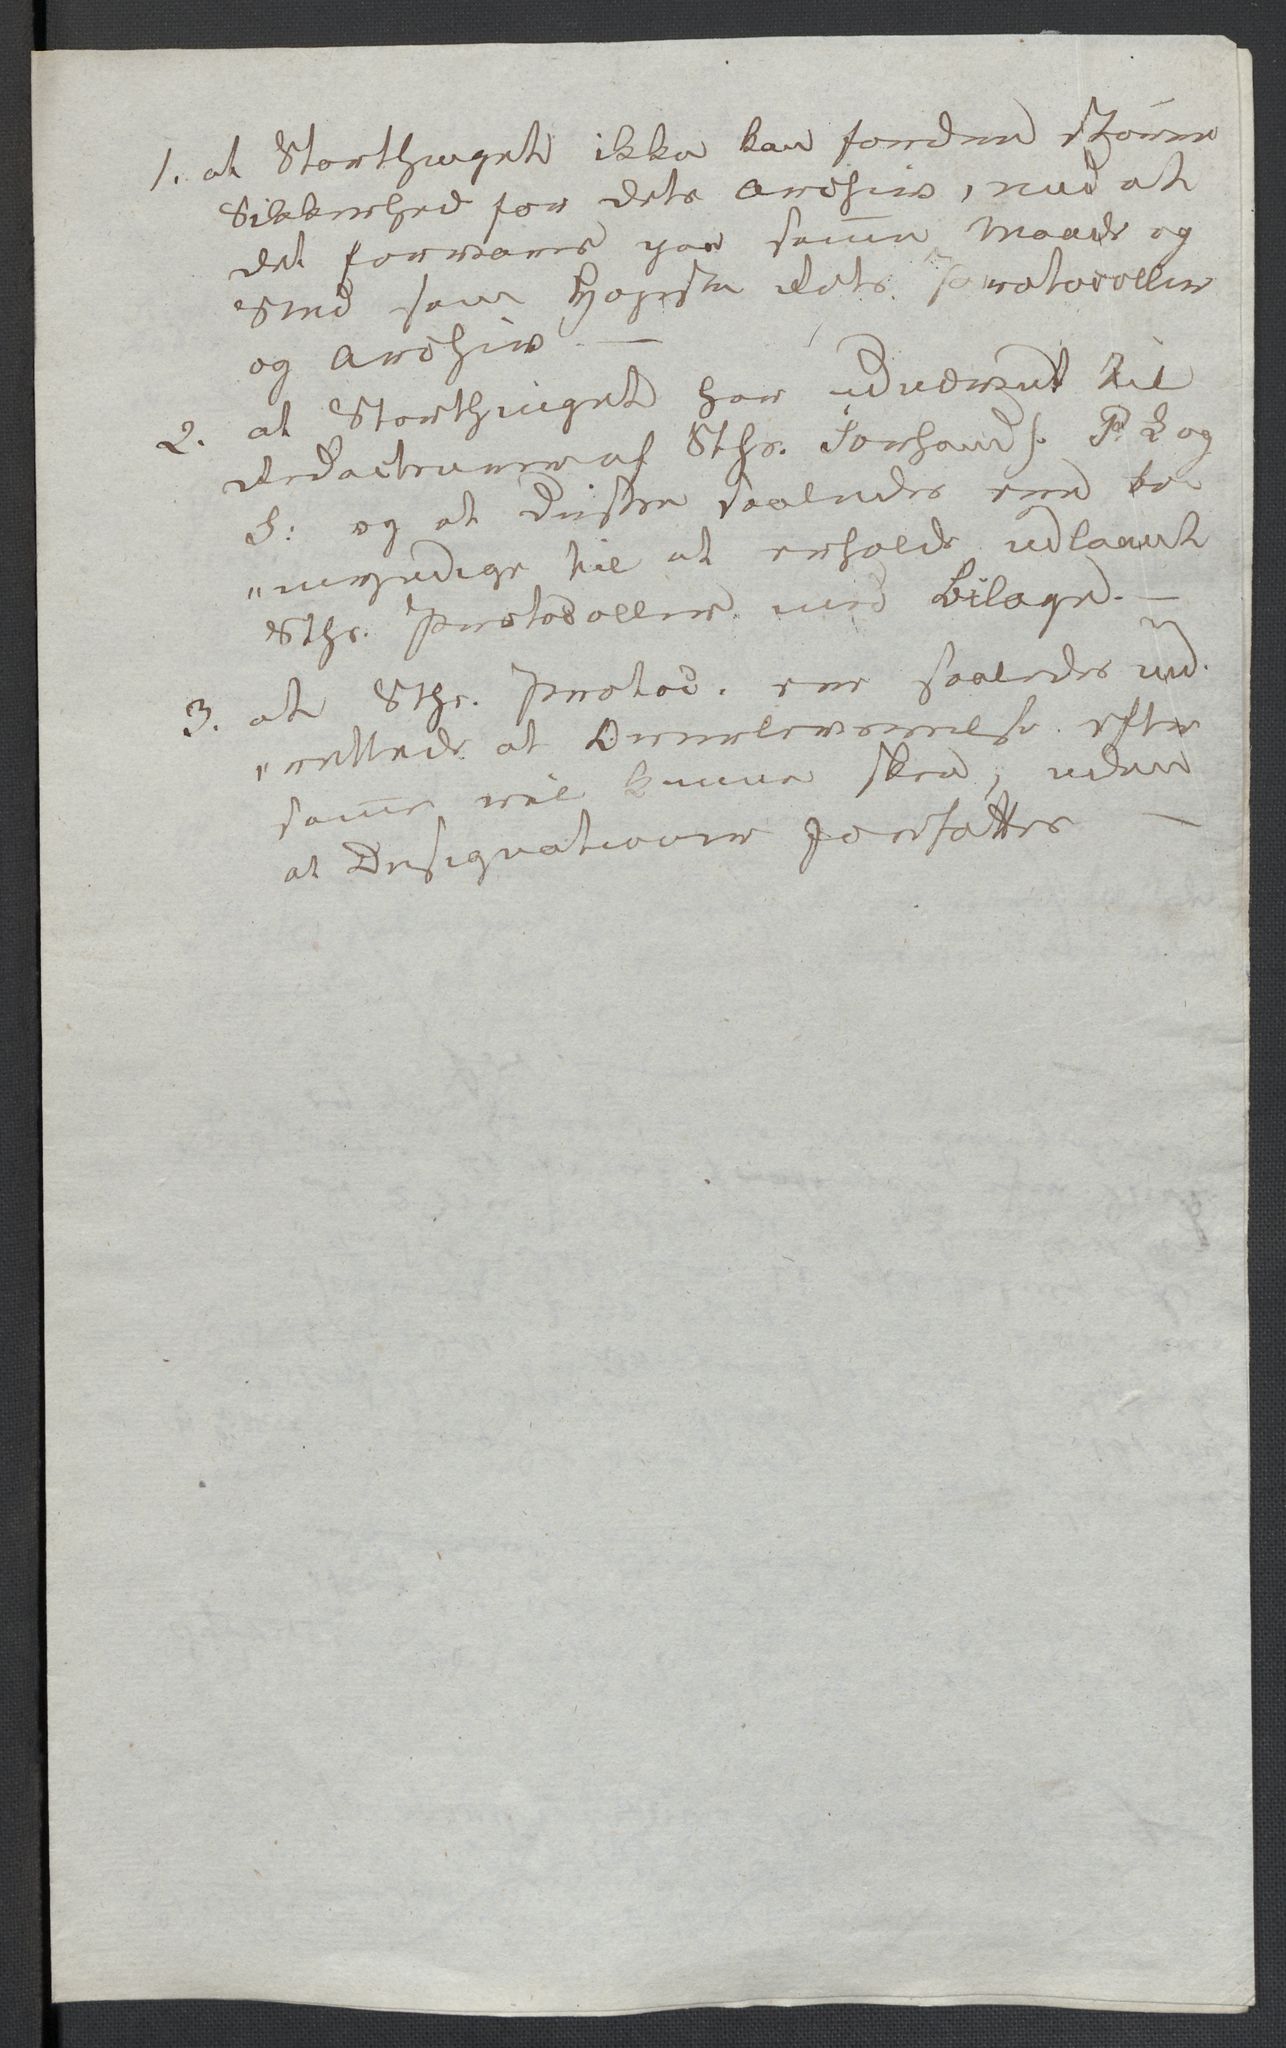 1. at Storthinget ikke kan fordre større
Sikkerhed for dets Archiv, end at
det forvares paa samme Maade og
Sted som Høyeste Rets Protocoller
og Archiv. —
2. at Storthinget har udnævnt til
Redacteurer af Sths. Forhand. P. L og
S: og at disse saaledes ere be
"myndige til at erholde udlaant
Sths. Protocoller med Bilage. —
3. at Sths. Protoc. ere saaledes ind
"rettede at Overleverelse efter
samme vil kunne skee, uden
at Designationer forfattes —